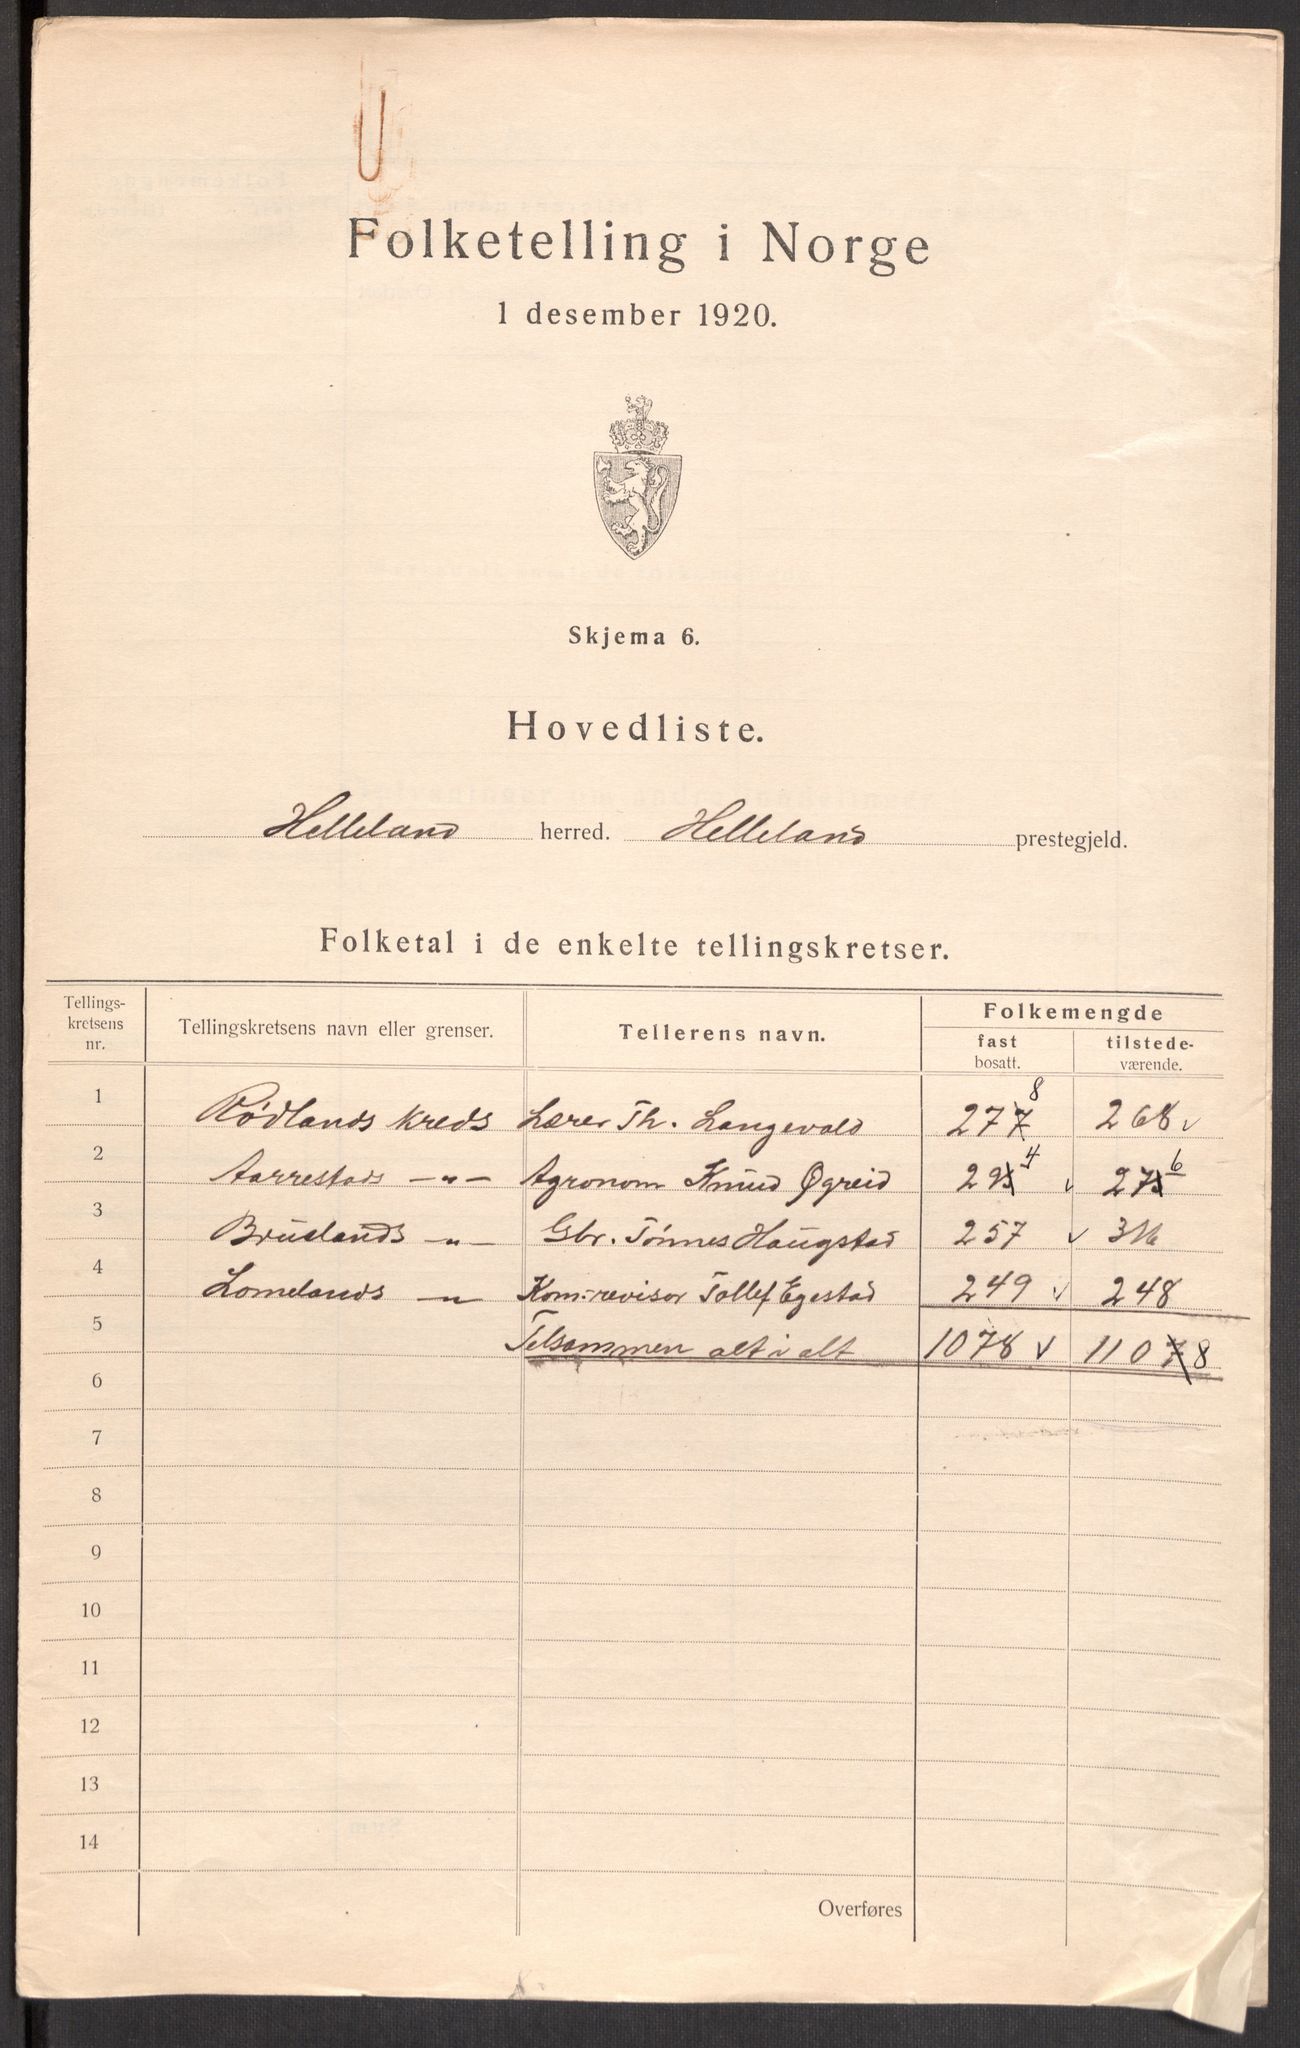 Folketelling i Norge
1 desember 1920.
Skjema 6.
Hovedliste.
Helleland herred. Helleland prestegjeld.
Folketal i de enkelte tellingskretser.
Tellings-
kretsens
nr.
Tellingskretsens navn eller grenser.
Tellerens navn.
Folkemengde
fast
bosatt.
tilstede-
værende.
1 Rødlands kreds Lærer Th. Langevald 277 8 268 v
2 Aarrestads -"- Agronom Knud Øgreid 295 4 v 275 6
3 Bruslands -"- Gbr. Tønnes Haugstad 257 v 316
4 Lomelands -"- Kom.revisor Tollef Egestad 249 v 248
5 Tilsammen alt i alt 1078 v 1107 8
6
7
8
9
10
11
12
13
14
Overføres